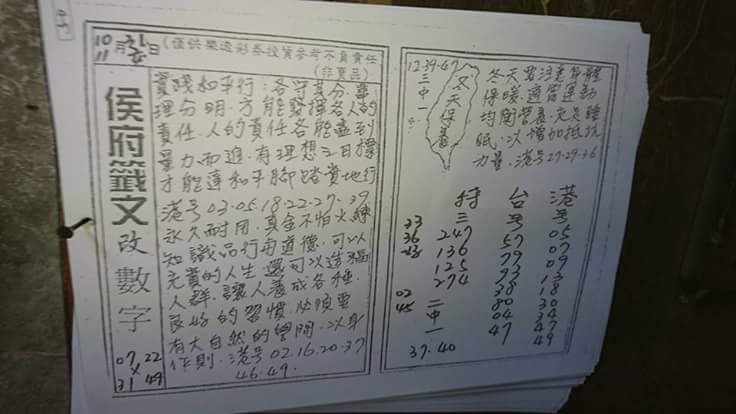 10月31日
11
(僅供樂透彩券投資參考不負責任
(非賣品)
侯府籤文改數字
07 22
31 49
實踐和平行：各守其分．事
理分明．方能發揮各人的
責任．人的責任各能盡到
量力而進．有理想之目標
才能運和平腳踏實地行
港号03.05.18.22.27.39
永久耐用．真金不怕火練
知識品行用道德．可以
充實的人生還可以造福
人群．讓人養成各種
良好的習慣
有大自然的學問．以身
作則．港号02.16.20.37
46.49.
12.39.47
三中一
冬天保養
冬天
保暖．適當運動
均衡營養．充足睡
眠．以增加抵抗
力量．港号27.29.36
特 台 港
三 号 号
33 247 57 05
36 136 79 07
125 93 09
274 38 18
02 80 30
45 二 04 34
中 47 47
一 49
37.40